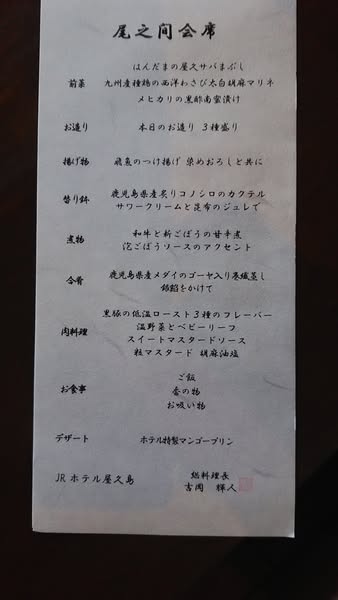 尾之间会席
前菜
はんだまの屋久サバまぶし
九州産種鶏の西洋わさび太白胡麻マリネ
メヒカリの黒酢南蛮漬け
お造り
本日のお造り 3種盛り
揚げ物
飛魚のつけ揚げ 染めおろしと共に
替り鉢
鹿児島県産炙りコノシロのカクテル
サワークリームと昆布のジュレで
煮物
和牛と新ごぼうの甘辛煮
泡ごぼうソースのアクセント
合肴
鹿児島県産メダイのゴーヤ入り巻繊蒸し
銀餡をかけて
肉料理
黒豚の低温ロースト3種のフレーバー
温野菜とベビーリーフ
スイートマスタードソース
粒マスタード 胡麻油塩
お食事
ご飯
香の物
お吸い物
デザート
ホテル特製マンゴープリン
JRホテル屋久島
総料理長
吉岡 輝人